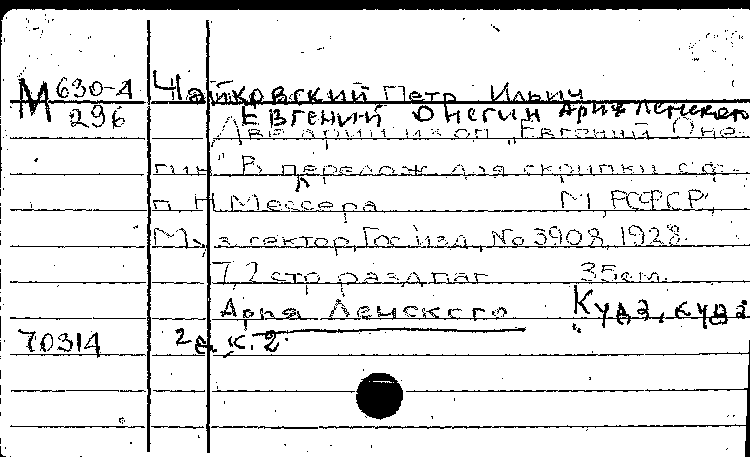 М 630-4 Чайковский Петр Ильич
296 Евгений Онегин Ария Ленского
Две арии из оп. „Евгений Оне-
гин" В перелож. для скрипки с ф.
п. Н. Мессера М., РСФСР,
Муз. сектор, Гос. изд., No 3908, 1928.
7, 2 стр. разд. паг. 35 см.
Ария Ленского „Куда, куда
70314 2 эк. к. 2.